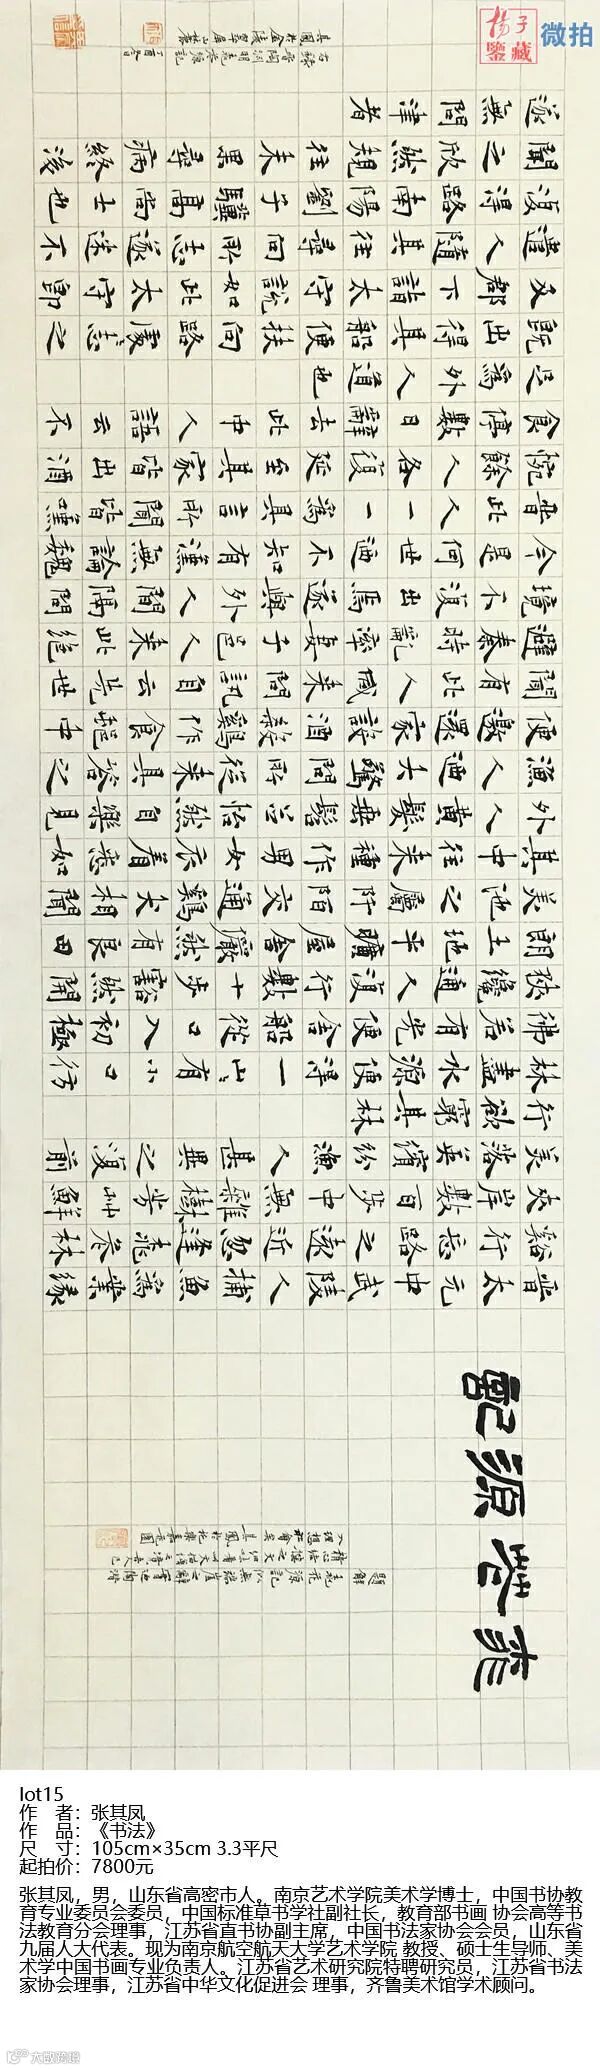 楊子
鑒藏
微拍
桃花源記
題解
晉太元中武陵人捕魚為業緣
谿行忘路之遠近忽逢桃花林
夾岸數百步中無雜樹芳艸鮮
美落英繽紛漁人甚異之復前
行欲窮其林
林盡水源便得一山〻有小口彷
彿若有光便舍船從口入初極
狹纔通人復行數十步豁然開
朗土地平曠屋舍儼然有良田
美池之屬阡陌交通鷄犬相聞
其中往來種作男女衣着悉如
外人黃髮垂髫並怡然自樂見
漁人迺大驚問所從來具答之
便邀還家設酒殺鷄作食中
聞有此人咸來問訊自云先世
避秦時亂率妻子邑人來此絕
境不復出焉遂與外人間隔問
今是何世迺不知有漢無論魏
晉此人一一為具言所聞皆嘆
惋餘人各復延至其家皆出酒
食停數日辭去此中人語云不
足為外人道也
既出得其船便扶向路處〻志之
及郡下詣太守說如此太守即
遣人隨其往尋向所志遂迷不
復得路南陽劉子驥高尚士也
聞之欣然規往未果尋病終後
遂無問津者
右錄晉陶淵明桃花源記
丁酉冬日
其鳳於金陵翠屏山林麓
lot15
作 者：张其凤
作 品：《书法》
尺 寸：105cm×35cm 3.3平尺
起拍价：7800元
张其凤，男，山东省高密市人。南京艺术学院美术学博士，中国书协教
育专业委员会委员，中国标准草书学社副社长，教育部书画 协会高等书
法教育分会理事，江苏省直书协副主席，中国书法家协会会员，山东省
九届人大代表。现为南京航空航天大学艺术学院 教授、硕士生导师、美
术学中国书画专业负责人。江苏省艺术研究院特聘研究员，江苏省书法
家协会理事，江苏省中华文化促进会 理事，齐鲁美术馆学术顾问。
大数跨境